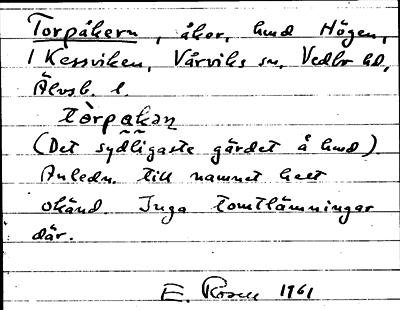 Torpåkern, åker, hmd Högen,
i Kessviken, Vårviks sn, Vedbo hd,
Älvsb. l.
tòrpakən
(Det sydligaste gärdet å hmd).
Anledn. till namnet helt
okänd. Inga tomtlämningar
där.
E. Rosell 1961